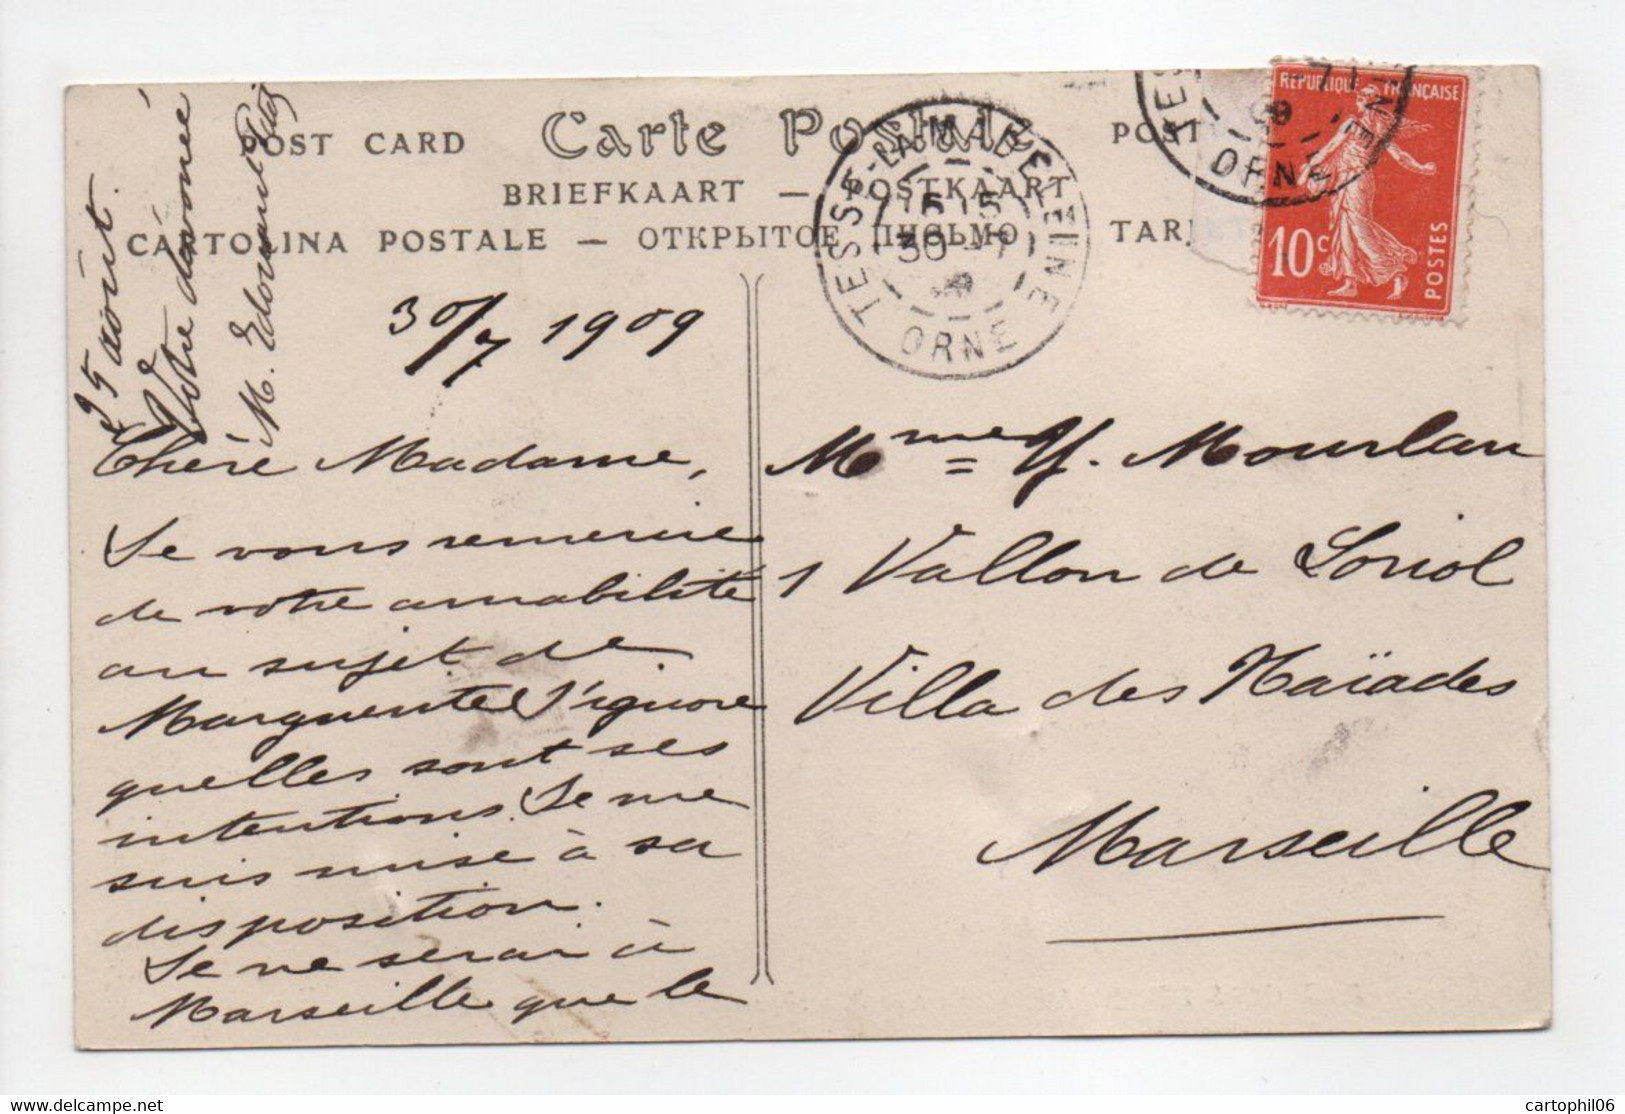 POST CARD Carte Postale POST
BRIEFKAART — POSTKAART
CARTOLINA POSTALE — ОТКРЫТОЕ ПИСЬМО TAR
TESSE-LA-MADELEINE
15 15
30 -7
09
ORNE
09
ORNE
REPUBLIQUE FRANÇAISE
10c
POSTES
30/7 1909
Chère Madame,
Je vous remercie
de votre amabilité
au sujet de
Marguerite J'ignore
quelles sont ses
intentions. Je me
suis mise à sa
disposition.
Je ne serai à
Marseille que le
25 août.
Votre dévouée
M.
Mme Y. Mourlan
1 Vallon de Loriol
Villa des Naïades
Marseille
cartophil06